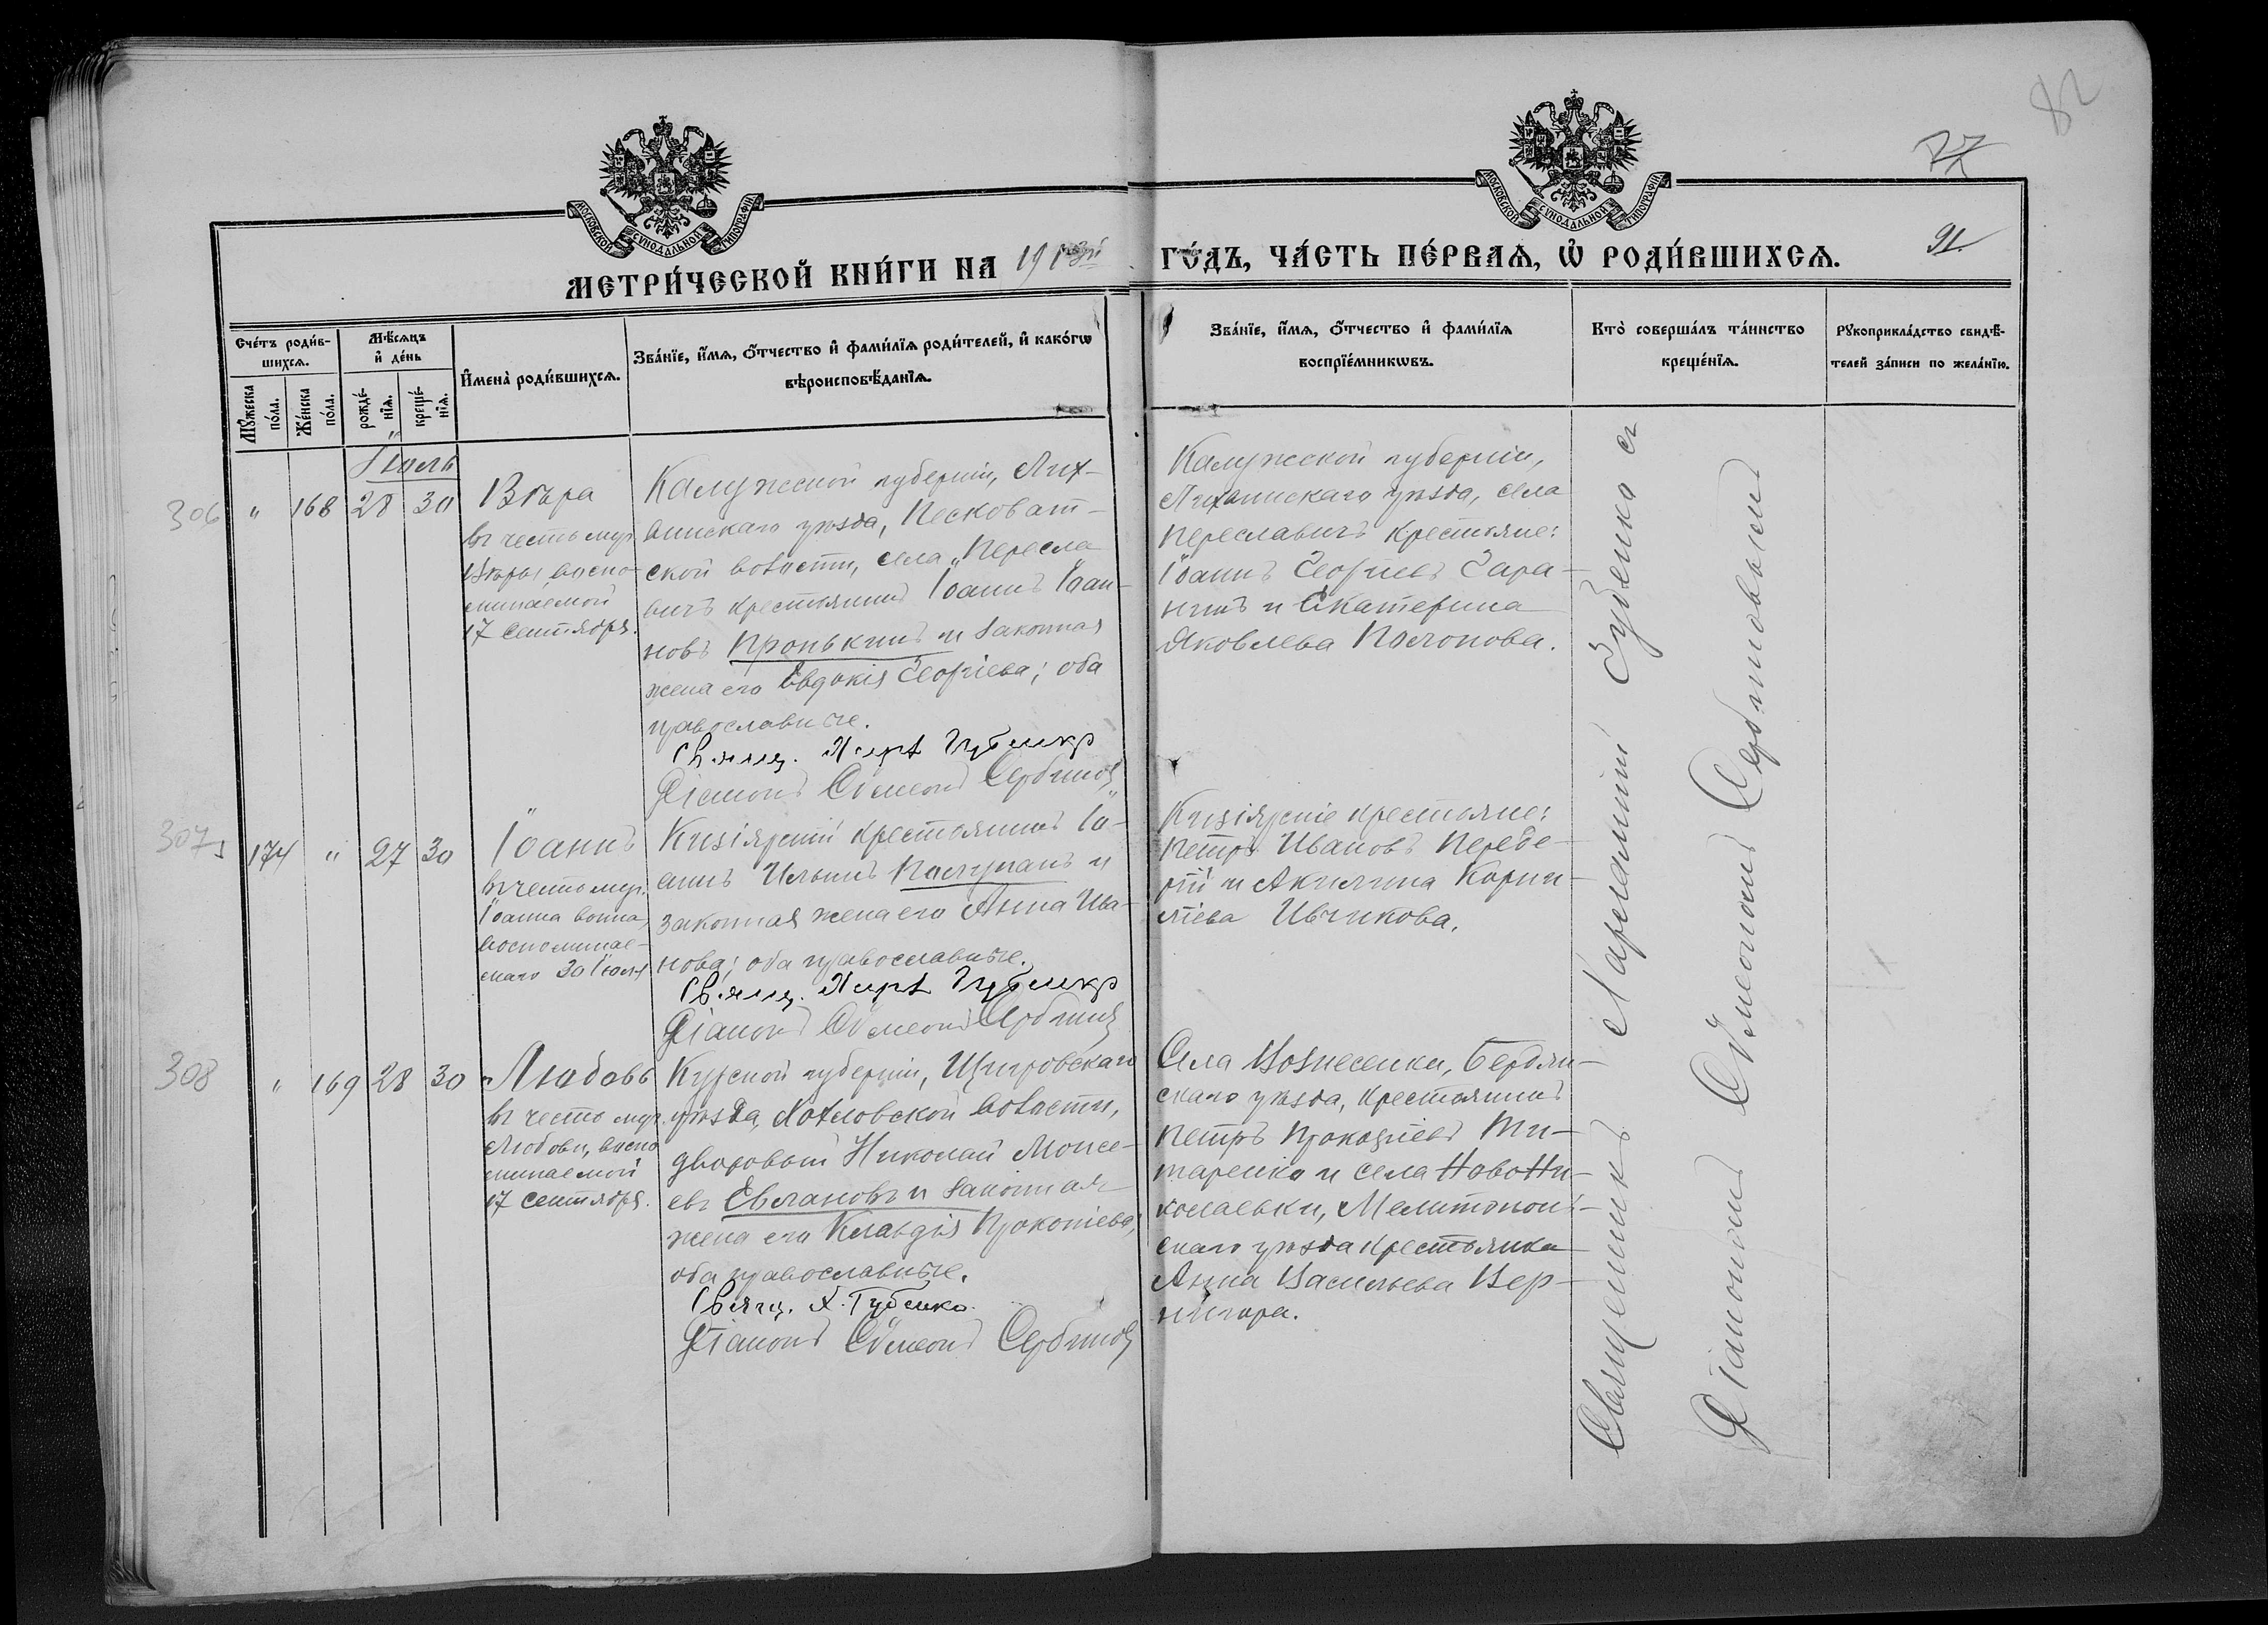 82
77
91
МОСКОВСКОЙ СѴНОДАЛЬНОЙ ТИПОГРАФІИ
МОСКОВСКОЙ СѴНОДАЛЬНОЙ ТИПОГРАФІИ
МЕТРИ́ЧЕСКОЙ КНИ́ГИ НА 191 ГО́ДЪ, ЧА́СТЬ ПЕ́РВАѦ, Ѡ҆ РОДИ́ВШИХСѦ.
Сче́тъ роди́в-
шихсѧ.
Мꙋ́жеска по́ла.
Же́нска по́ла.
Мѣ́сѧцъ
и҆ де́нь
рожде́-
нїѧ.
креще́-
нїѧ.
И҆мена̀ роди́вшихсѧ.
Зва́нїе, и҆́мѧ, ѻ҆́тчество и҆ фами́лїѧ роди́телей, и҆ како́гѡ
вѣроисповѣ́данїѧ.
Зва́нїе, и҆́мѧ, ѻ҆́тчество и҆ фами́лїѧ
воспрїе́мникѡвъ.
Кто̀ соверша́лъ та́инство
креще́нїѧ.
Рꙋкоприкла́дство свидѣ́-
телей за́писи по жела́нїю.
Іюль
306 " 168 28 30
Вѣра
въ честь муч.
Вѣры, воспо-
минаемой
17 Сентября.
Калужской губерніи, Лих-
винскаго уѣзда, Песковат-
ской волости, села "Пересла-
вичъ крестьянинъ Іоаннъ Іоан-
новъ Пронькинъ и законная
жена его Евдокія Георгіева; оба
православные.
Свящ. Губенко
Діаконъ Сѵмеонъ Сербиновъ
Калужской губерніи,
Лихвинскаго уѣзда, села
Переславичъ крестьяне:
Іоаннъ Георгіевъ Гара-
нинъ и Екатерина
Яковлева
307 174 " 27 30
Іоаннъ
въ честь муч.
Іоанна воина,
воспоминае-
маго 30 Іюля
Кизіярскій крестьянинъ Іо-
аннъ Ильинъ Полупанъ и
законная жена его Анна Ива-
нова; оба православные.
Свящ. Губенко
Діаконъ Сѵмеонъ Сербиновъ
Кизіярскіе крестьяне:
Петръ Ивановъ Перебе-
рій и Акилина Корни-
ліева Ивчикова.
308 " 169 28 30
Любовь
въ честь муч.
Любови, воспо-
минаемой
17 Сентября.
Курской губерніи, Щигровскаго
уѣзда, Хохловской волости,
дворовый Николай Моисе-
евъ Евлановъ и законная
жена его Клавдія Прокопіева;
оба православные.
Свящ. Х. Губенко
Діаконъ Сѵмеонъ Сербиновъ
Села Вознесенки, Бердян-
скаго уѣзда, крестьянинъ
Петръ Прокопіевъ Ти-
таренко и села Ново-Ни-
колаевки, Мелитополь-
скаго уѣзда крестьянка
Анна Васильева Вер-
нигора.
Священникъ Харлампій Губенко съ
Діакономъ Сѵмеономъ Сербиновымъ